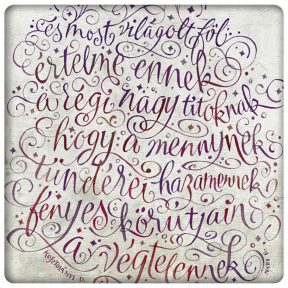 és most világolt föl:
értelme ennek
a régi nagy titoknak
hogy a mennynek
tündérei hazamennek
fényes körútjain
a végtelennek